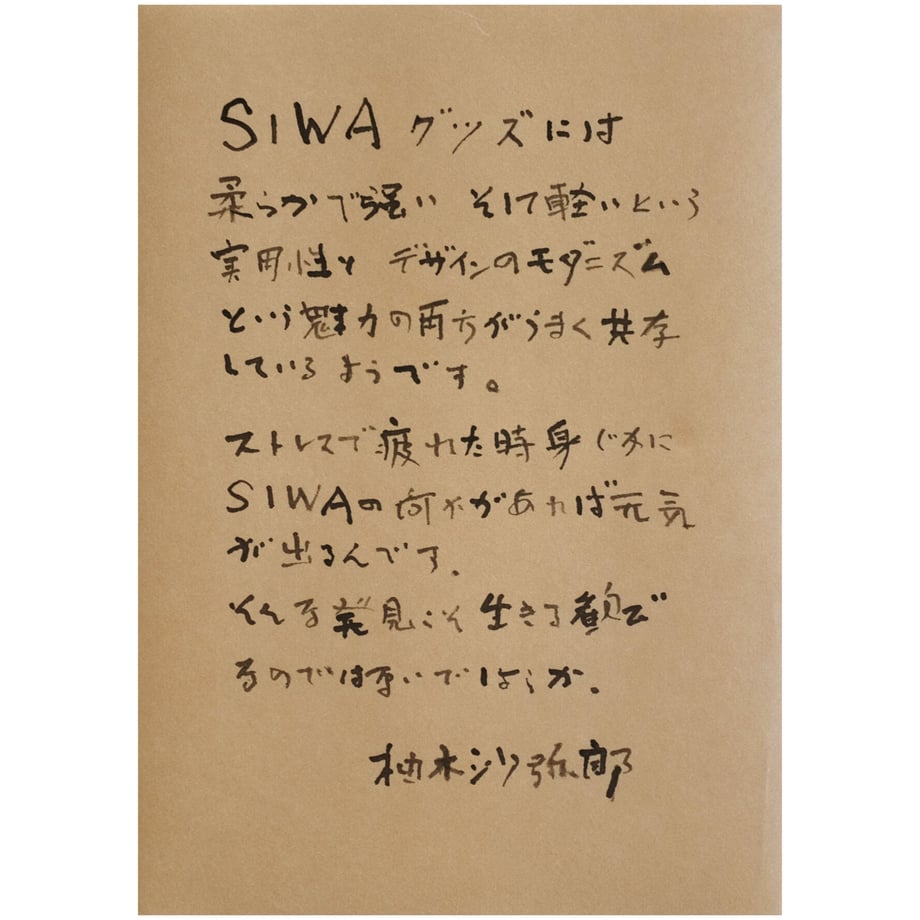 SIWA グッズには
柔らかで強い そして軽いという
実用性と デザインのモダニズム
という魅力の両方がうまく共存
しているようです。
ストレスで疲れた時身じかに
SIWAの何かがあれば元気
が出るんです.
そんな発見こそ生きる歓び
なのではないでしょうか.
柚木沙弥郎